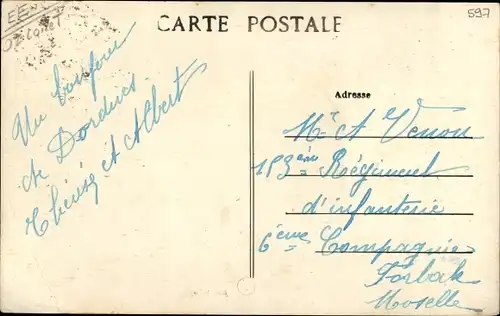 CARTE POSTALE
597
Un bonjour
de Dordives
Thérèse et Albert
Adresse
Mr A Venon
153ème Régiment
d'infanterie
6ème Compagnie
Forbak
Moselle